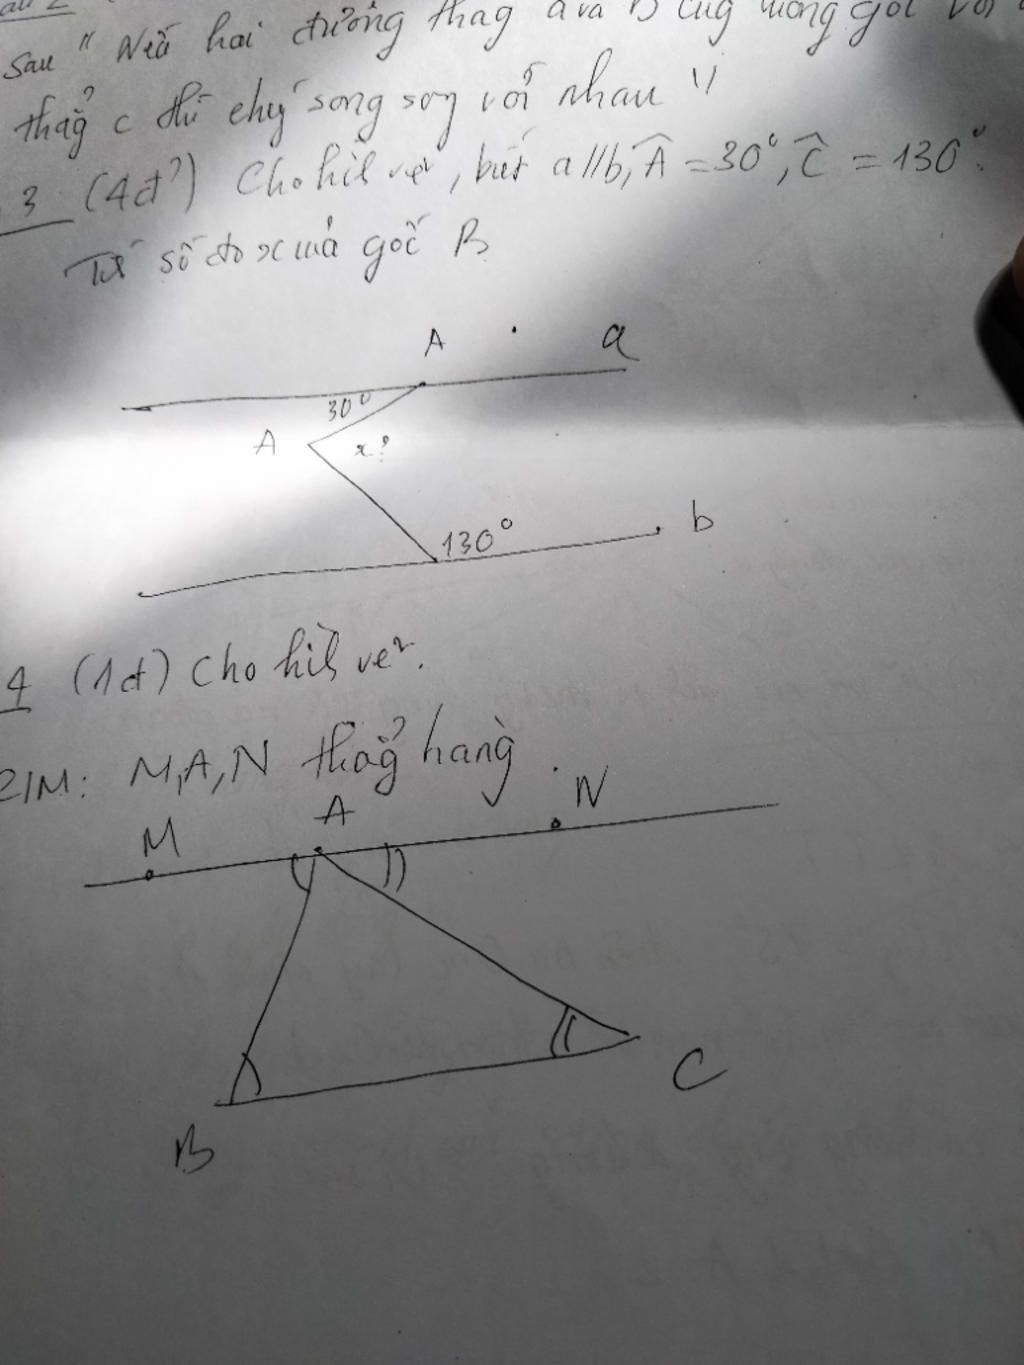 sau " Nếu hai đường thag a và b cug vuông góc với
thẳg c thì chú song sog với nhau "
3 (4đ) Cho hìh vẽ, biết a//b, Â = 30°, Ĉ = 130°.
Tíh số đo x của góc B
A a
30°
A x?
130° b
4 (1đ) Cho hìh vẽ.
C/M: M,A,N thẳg hàng
M A N
B C